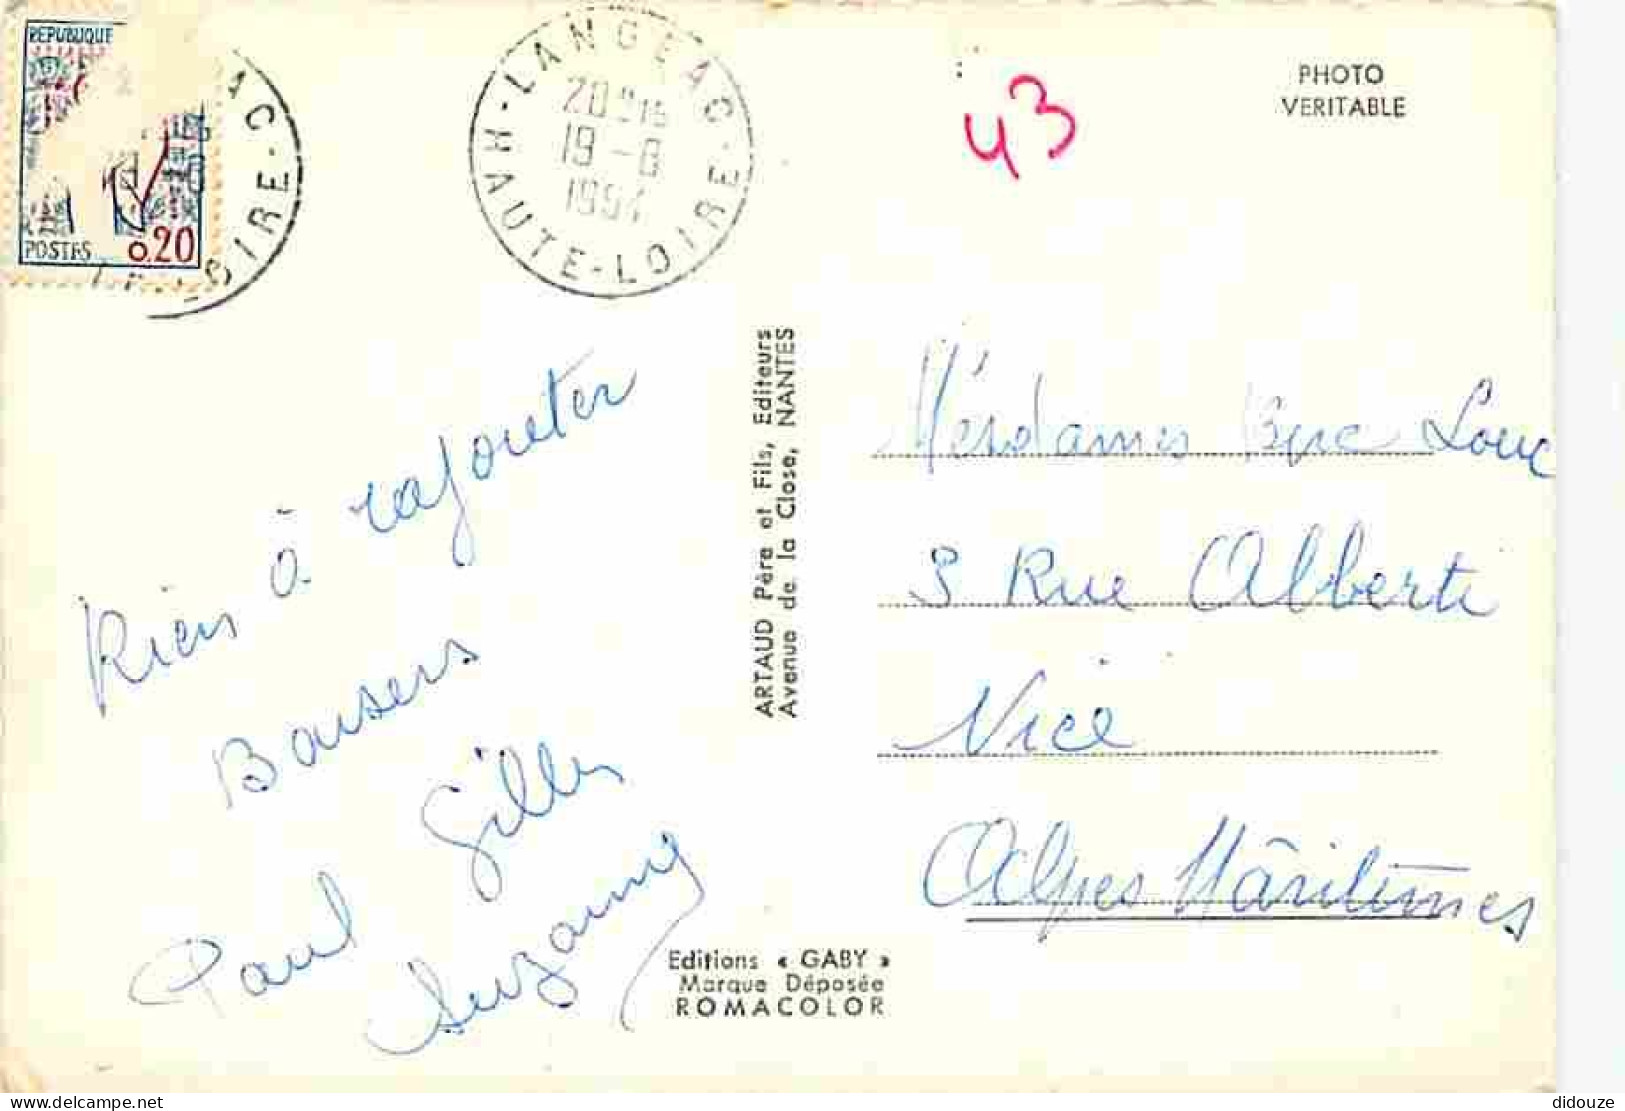 REPUBLIQUE
POSTES
0,20
LANGEAC
HAUTE-LOIRE
19 - 8
43
PHOTO
VERITABLE
Rien à rajouter
Baisers
Paul Gilles
Suzanne
ARTAUD Père et Fils, Editeurs
Avenue de la Close, NANTES
Editions « GABY »
Marque Déposée
ROMACOLOR
Mesdames Luc
3 Rue Alberti
Nice
Alpes Maritimes
didouze